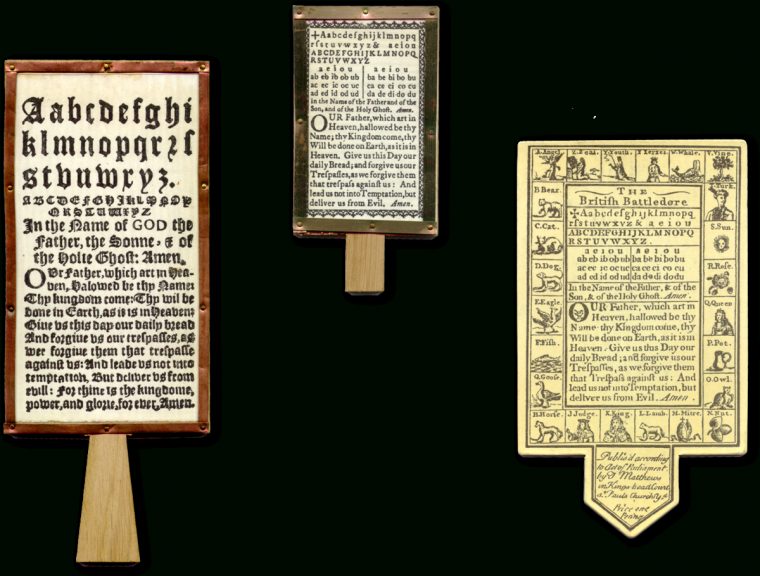 Aabcdefghi
klmnopqrꝛſ
stvuwxyz.
ABCDEFGHIJKLMNOP
QRSTUWXYZ
In the Name of GOD the
Father, the Sonne, & of
the Holie Ghoſt: Amen.
OUr Father, which art in Hea-
ven, Halowed be thy Name:
Thy kingdome come: Thy wil be
done in Earth, as it is in Heaven:
Giue vs this day our daily bread
And forgiue vs our treſpaſſes, as
wee forgiue them that treſpaſſe
againſt vs: And leade vs not into
temptation, But deliver vs from
evill: For thine is the kingdome,
power, and glorie, for ever, Amen.
✢Aabcdefghijklmnopq
rſstuvwxyz& aeiou
ABCDEFGHIJKLMNOPQ
RSTUVWXYZ
a e i o u | a e i o u
ab eb ib ob ub | ba be bi bo bu
ac ec ic oc uc | ca ce ci co cu
ad ed id od ud | da de di do du
in the Name of the Father and of the
Son, and of the Holy Ghoſt. Amen.
OUR Father, which art in
Heaven, hallowed be thy
Name; thy Kingdom come, thy
Will be done on Earth, as it is in
Heaven. Give us this Day our
daily Bread; and forgive us our
Treſpaſſes, as we forgive them
that treſpaſs againſt us: And
lead us not into Temptation, but
deliver us from Evil. Amen.
A. Angel. Y. Youth. W. Whale. V. Vine.
B. Bear.
C. Cat.
D. Dog.
E. Eagle.
F. Fiſh.
G. Gooſe.
T. Turk.
S. Sun.
R. Roſe.
Q. Queen
P. Pot.
O. Owl.
THE
Britiſh Battledore
✢Aabcdefghijklmnopq
rſstuvwxyz & aeiou
ABCDEFGHIJKLMNOPQ
RSTUVWXYZ.
a e i o u | a e i o u
ab eb ib ob ub ba be bi bo bu
ac ec ic oc uc ca ce ci co cu
ad ed id od ud da de di do du
In the Name of the Father, & of the
Son, & of the Holy Ghoſt. Amen.
OUR Father, which art in
Heaven, hallowed be thy
Name thy Kingdom come, thy
Will be done on Earth, as it is in
Heaven. Give us this Day our
daily Bread; and forgive us our
Treſpaſſes, as we forgive them
that Treſpaſs againſt us: And
lead us not into Temptation, but
deliver us from Evil. Amen.
H. Horſe. J. Judge. K. King. L. Lamb. M. Mitre. N. Nut.
Publiſ'd according
to Act of Parliament.
by Matthews
in Kings head Court
Pauls Church
Price one
Penny